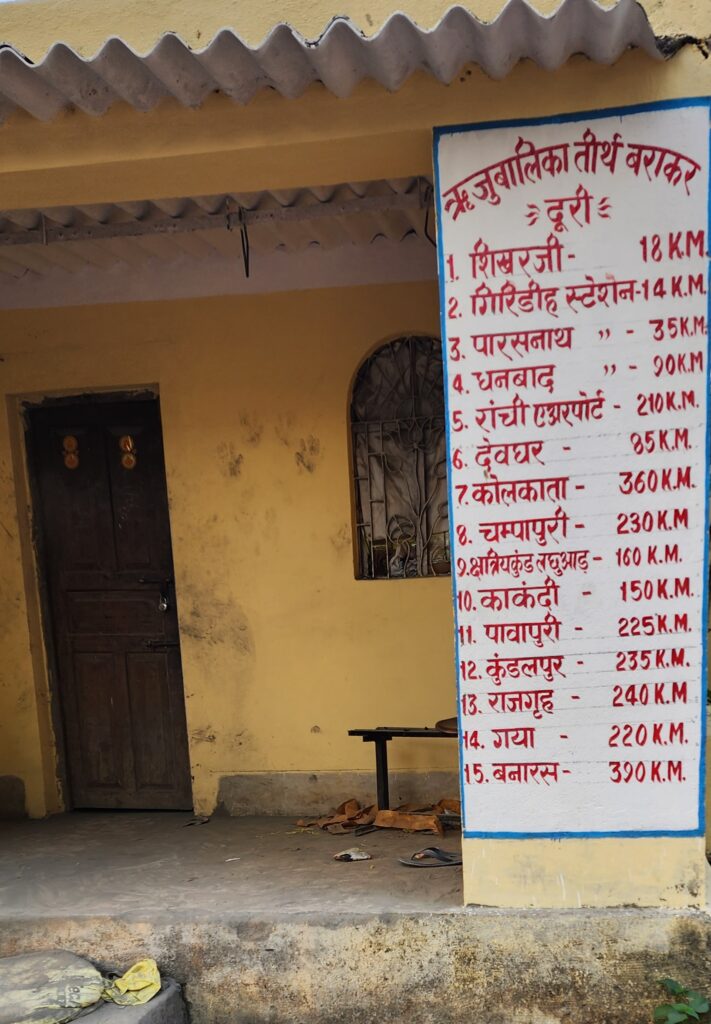 ऋजुबालिका तीर्थ बराकर
दूरी
1. शिखरजी - 18 K.M.
2. गिरिडीह स्टेशन - 14 K.M.
3. पारसनाथ " - 35 K.M.
4. धनबाद " - 90 K.M
5. रांची एअरपोर्ट - 210 K.M.
6. देवघर - 85 K.M.
7. कोलकाता - 360 K.M.
8. चम्पापुरी - 230 K.M
9. क्षत्रियकुंड लछुआड़ - 160 K.M.
10. काकंदी - 150 K.M.
11. पावापुरी - 225 K.M.
12. कुंडलपुर - 235 K.M.
13. राजगृह - 240 K.M
14. गया - 220 K.M.
15. बनारस - 390 K.M.